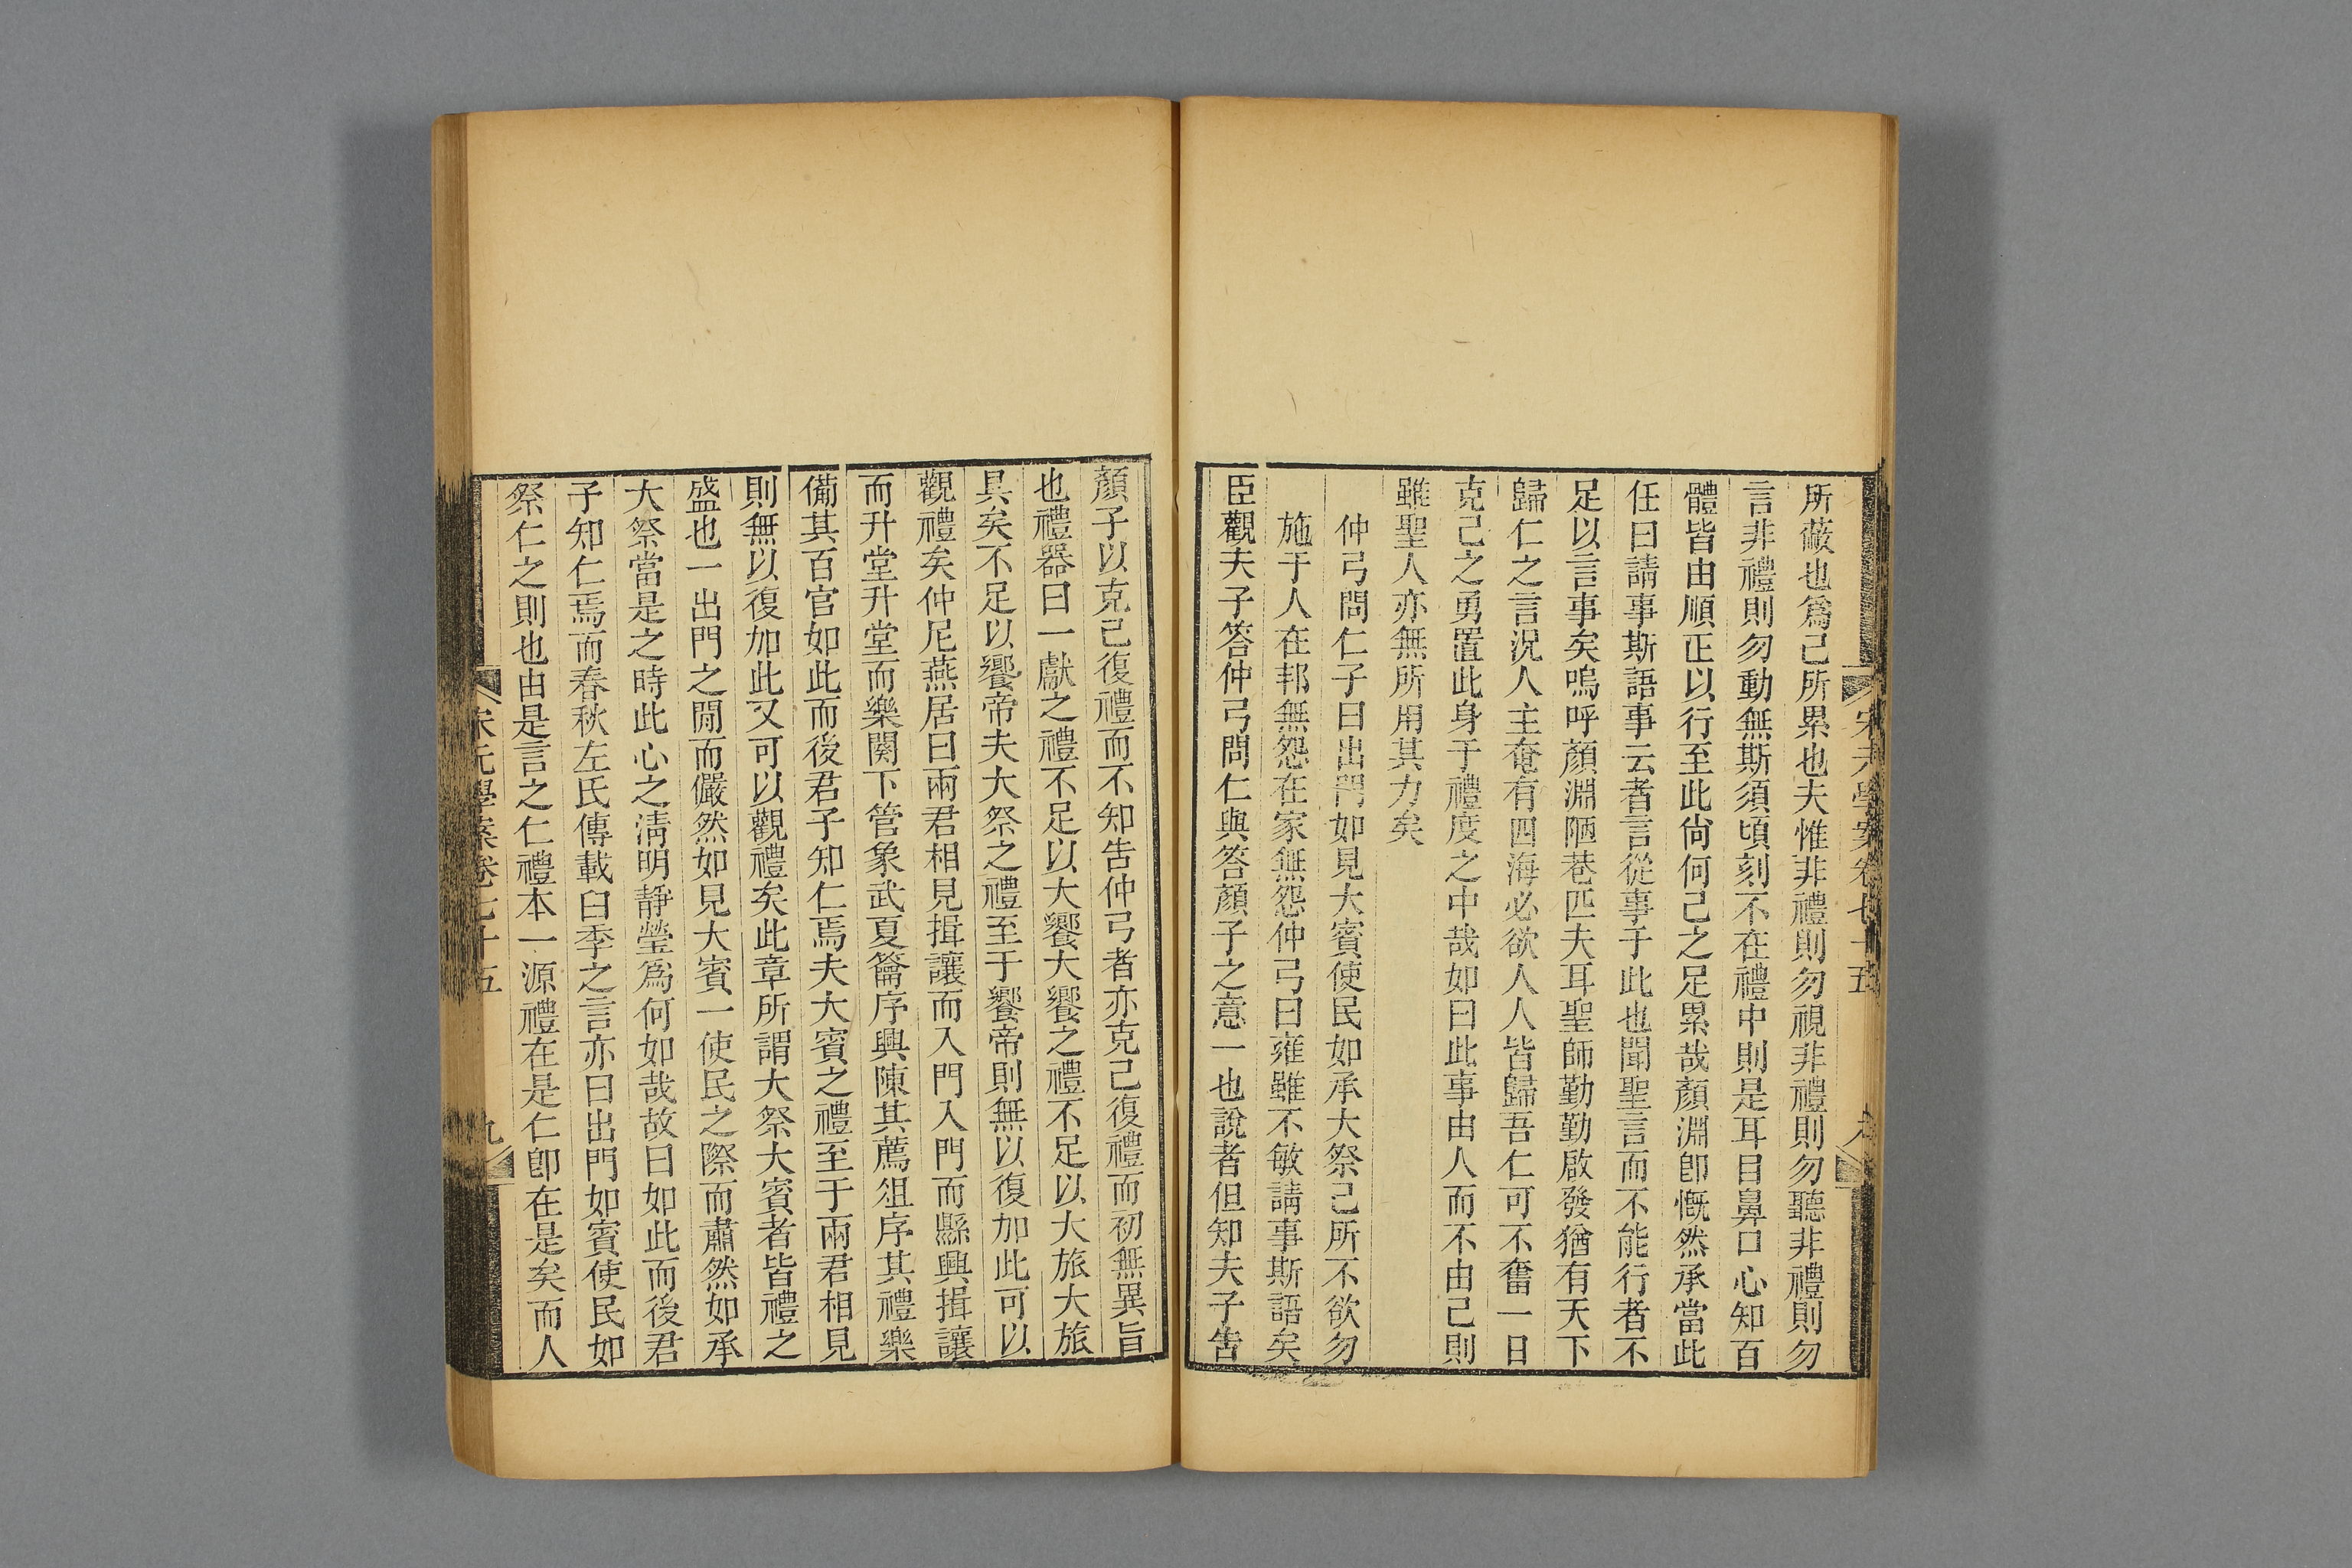 所蔽也爲己所累也夫惟非禮則勿視非禮則勿聽非禮則勿
言非禮則勿動無斯須頃刻不在禮中則是耳目鼻口心知百
體皆由順正以行至此尙何己之足累哉顏淵卽慨然承當此
任曰請事斯語事云者言從事于此也聞聖言而不能行者不
足以言事矣嗚呼顏淵陋巷匹夫耳聖師勤勤啟發猶有天下
歸仁之言況人主奄有四海必欲人人皆歸吾仁可不奮一日
克己之勇置此身于禮度之中哉如曰此事由人而不由己則
雖聖人亦無所用其力矣
仲弓問仁子曰出門如見大賓使民如承大祭己所不欲勿
施于人在邦無怨在家無怨仲弓曰雍雖不敏請事斯語矣
臣觀夫子答仲弓問仁與答顏子之意一也說者但知夫子告
顏子以克己復禮而不知告仲弓者亦克己復禮而初無異旨
也禮器曰一獻之禮不足以大饗大饗之禮不足以大旅大旅
具矣不足以饗帝夫大祭之禮至于饗帝則無以復加此可以
觀禮矣仲尼燕居曰兩君相見揖讓而入門入門而縣興揖讓
而升堂升堂而樂闋下管象武夏籥序興陳其薦俎序其禮樂
備其百官如此而後君子知仁焉夫大賓之禮至于兩君相見
則無以復加此又可以觀禮矣此章所謂大祭大賓者皆禮之
盛也一出門之閒而儼然如見大賓一使民之際而肅然如承
大祭當是之時此心之淸明靜瑩爲何如哉故曰如此而後君
子知仁焉而春秋左氏傳載臼季之言亦曰出門如賓使民如
祭仁之則也由是言之仁禮本一源禮在是仁卽在是矣而人
宋元學案卷七十五
九